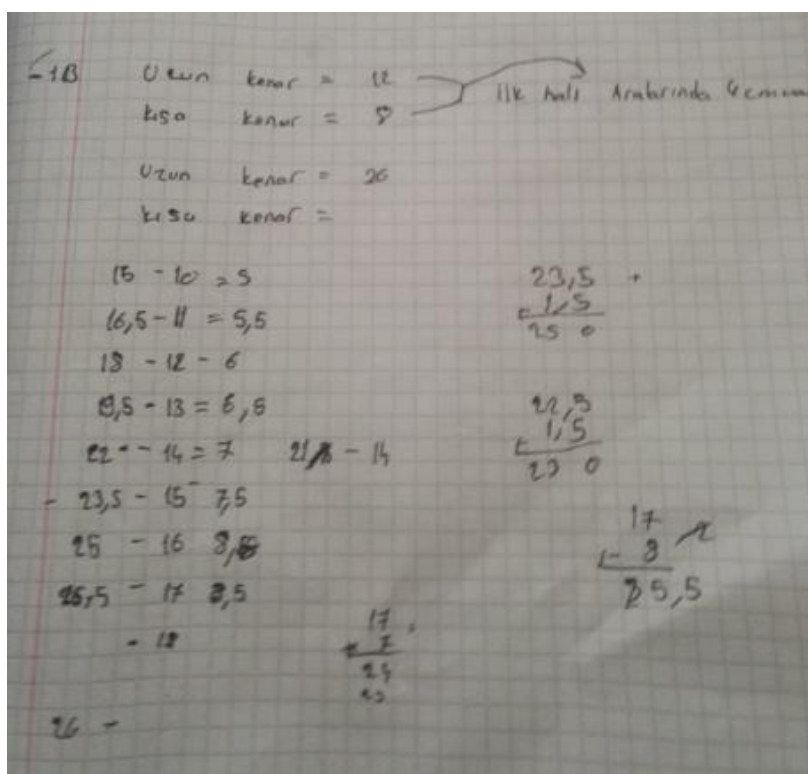 -1B Uzun kenar = 12
kısa kenar = 8
ilk hali Aralarında 4 cm var
Uzun kenar = 26
kısa kenar =
15 - 10 = 5
16,5 - 11 = 5,5
18 - 12 - 6
- 13 = 6,5
22 - - 14 = 7 - 14
- 23,5 - 15 - 7,5
25 - 16
- 17 8,5
- 18
26 -
23,5 +
+ 1,5
25 0
22,5
+ 1,5
23 0
17
- 8
25,5
17
+ 7
24